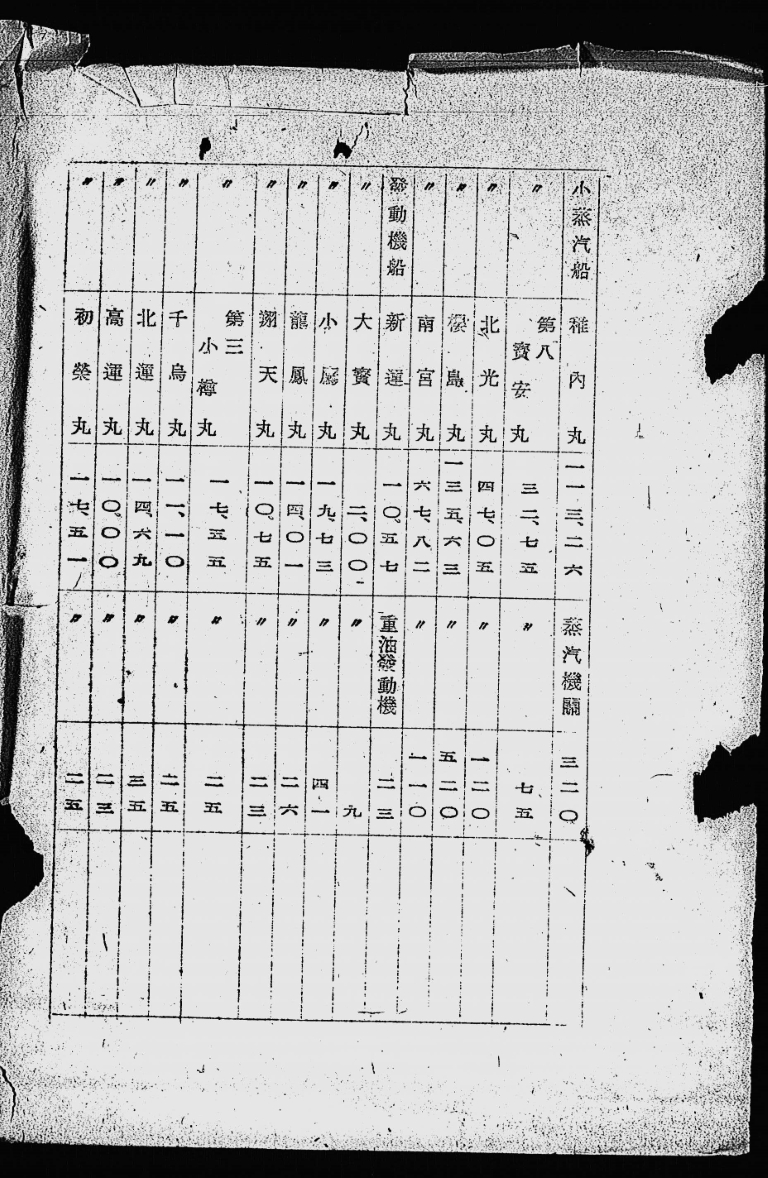 小蒸汽船 稚內丸 一一三、二六 蒸汽機關 三二〇
〃 第八寶安丸 三二、七五 〃 七五
〃 北光丸 四七、〇五 〃 一二〇
〃 櫻島丸 一三五、六三 〃 五二〇
〃 南宮丸 六七、八二 〃 一一〇
發動機船 新運丸 一〇、五七 重油發動機 二三
〃 大寶丸 二、〇〇 〃 九
〃 小鷹丸 一九、七三 〃 四一
〃 龍鳳丸 一四、〇一 〃 二六
〃 翔天丸 一〇、七五 〃 二三
〃 第三小樽丸 一七、五五 〃 二五
〃 千鳥丸 一一、一〇 〃 二五
〃 北運丸 一四、六九 〃 三五
〃 高運丸 一〇〇〇 〃 二三
〃 初榮丸 一七、五一 〃 二五